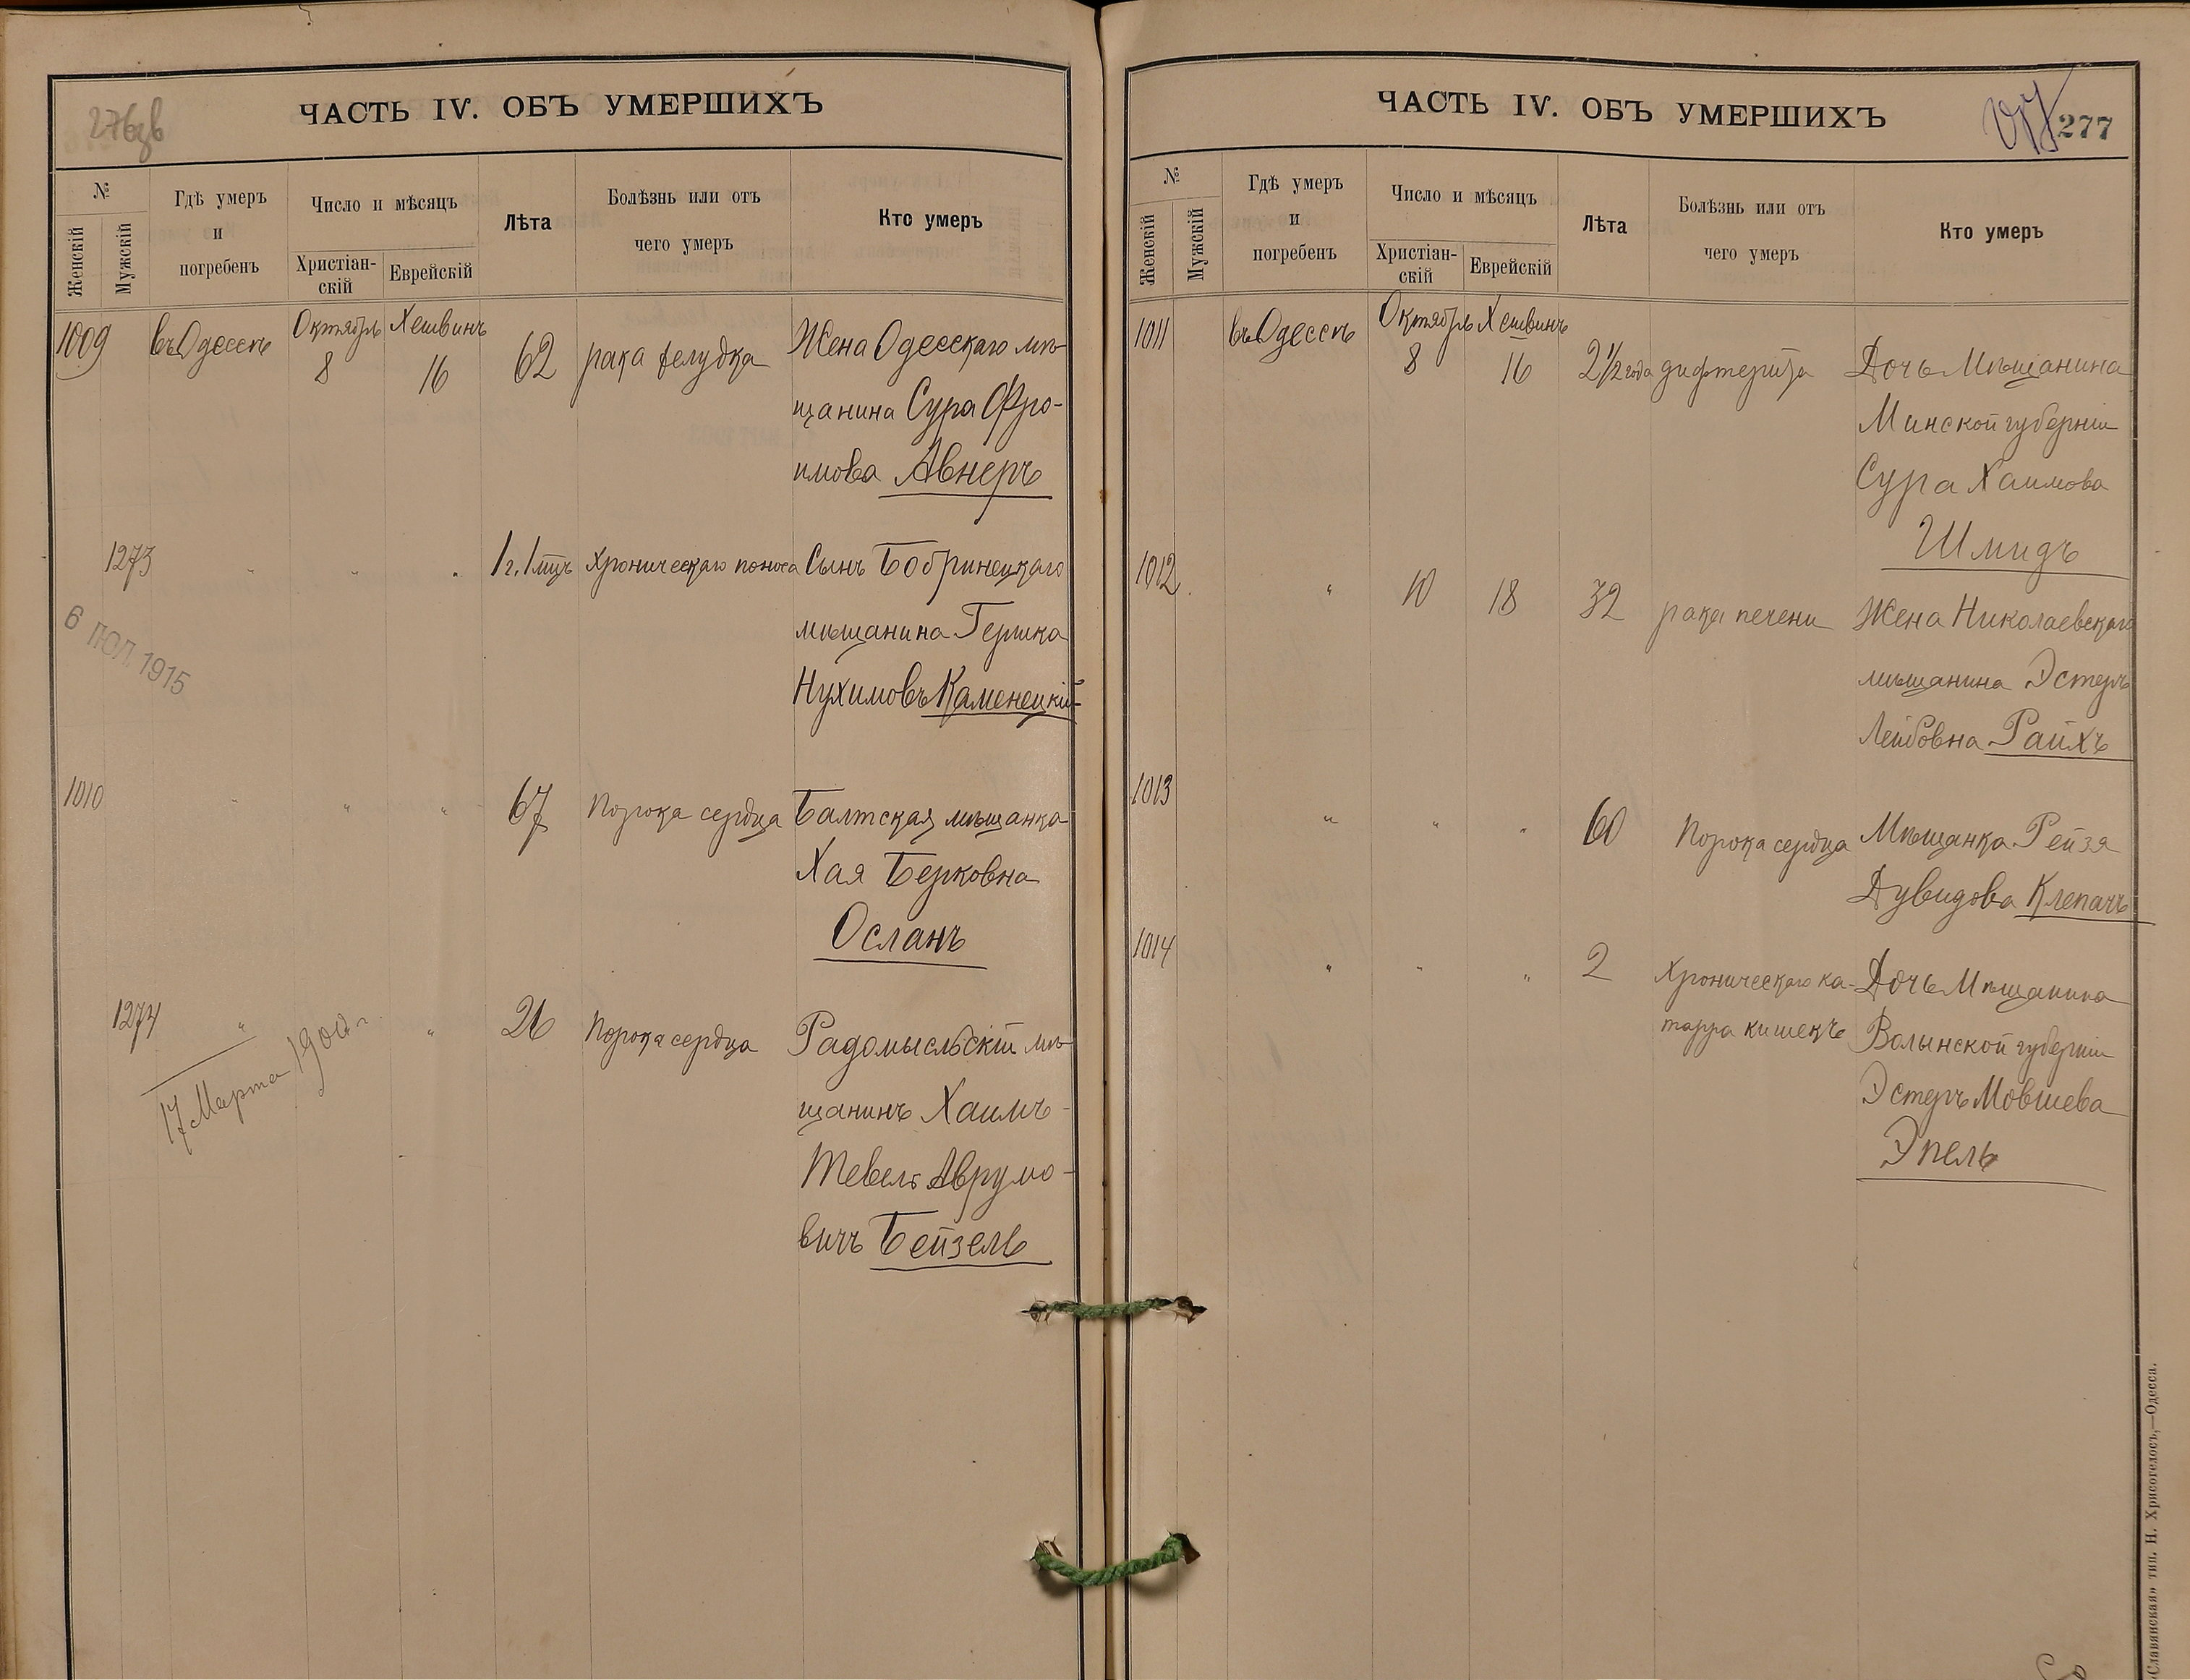 276об
ЧАСТЬ IV. ОБЪ УМЕРШИХЪ
№
Женскій
Мужскій
Гдѣ умеръ
и
погребенъ
Число и мѣсяцъ
Христіан-
скій
Еврейскій
Лѣта
Болѣзнь или отъ
чего умеръ
Кто умеръ
1009 въ Одессѣ Октябрь 8 Хешвинъ 16 62 рака желудка Жена Одесскаго мѣ-
щанина Сура Фро-
имова Авнеръ
1273 " " " 1 г. 1 мцъ Хроническаго поноса Сынъ Бобринецкаго
мѣщанина Гершка
Нухимовъ Каменецкій
6 ІЮЛ 1915
1010 " " " 67 Порока сердца Балтская мѣщанка
Хая Берковна
Осланъ
1274 " " 26 Порока сердца Радомысльскій мѣ-
щанинъ Хаимъ-
Тевель Аврумо-
вичъ Бейзель
17 Марта 1900 г.
ЧАСТЬ IV. ОБЪ УМЕРШИХЪ
277
№
Женскій
Мужскій
Гдѣ умеръ
и
погребенъ
Число и мѣсяцъ
Христіан-
скій
Еврейскій
Лѣта
Болѣзнь или отъ
чего умеръ
Кто умеръ
1011 въ Одессѣ Октябрь 8 Хешвинъ 16 2 1/2 года дифтерита Дочь Мѣщанина
Минской губерніи
Сура Хаимова
Шмидъ
1012 " 10 18 32 рака печени Жена Николаевскаго
мѣщанина Эстеръ
Лейбовна Райхъ
1013 " " " 60 Порока сердца Мѣщанка Рейзя
Дувидова Клепачъ
1014 " " " 2 Хроническаго ка- Дочь Мѣщанина
тарра кишекъ Волынской губерніи
Эстеръ Мовшева
Эпель
«Славянская» тип. Н. Хрисогелосъ,—Одесса.